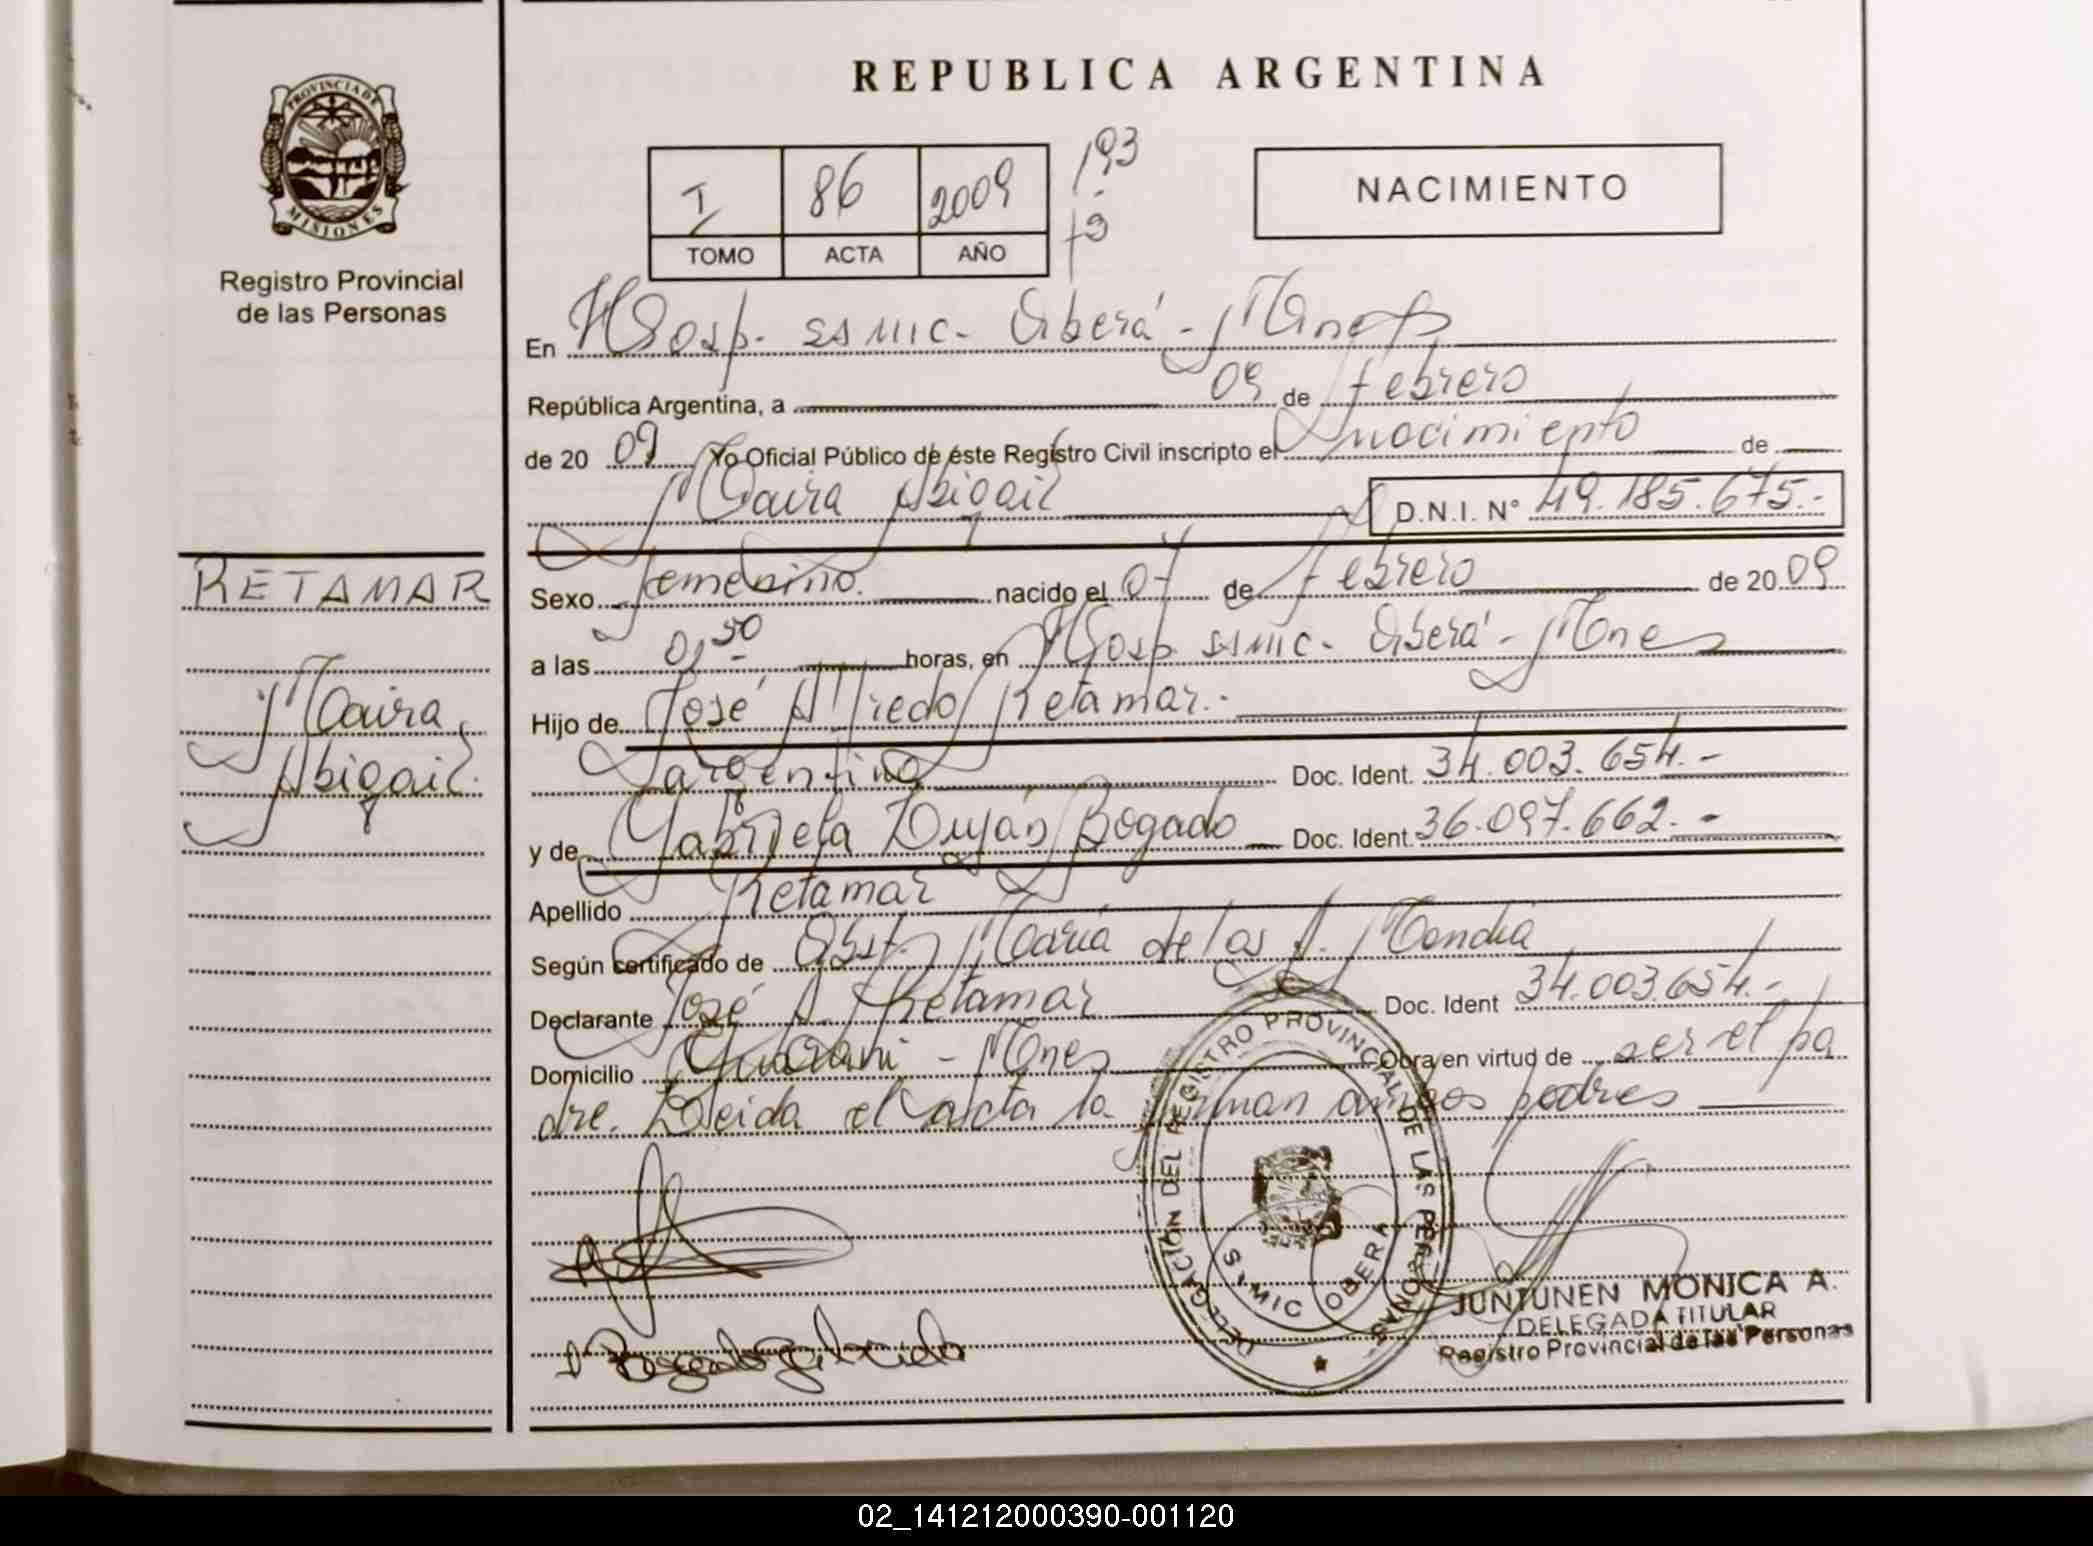 REPUBLICA ARGENTINA
PROVINCIA DE MISIONES
Registro Provincial
de las Personas
I 86 2009 193
TOMO ACTA AÑO
NACIMIENTO
En Hosp. SAMIC - Oberá - Mnes
República Argentina, a 09 de febrero
de 2009 Yo Oficial Público de éste Registro Civil inscripto el nacimiento de
Maira Abigail D.N.I. N° 49.185.675.-
RETAMAR
Maira
Abigail.
Sexo femenino. nacido el 07 de febrero de 2009
a las 01,50 horas, en Hosp SAMIC - Oberá - Mnes
Hijo de José Alfredo Retamar.-
argentino Doc. Ident. 34.003.654.-
y de Gabriela Luján Bogado Doc. Ident. 36.097.662.-
Apellido Retamar
Según certificado de Obst. María de los A.
Declarante José A. Retamar Doc. Ident 34.003.654.-
Domicilio Guaraní - Mnes Obra en virtud de ser el pa
dre. Leida el acta la firman ambos padres
DELEGACIÓN DEL REGISTRO PROVINCIAL DE LAS PERSONAS
SAMIC OBERA
JUNTUNEN MONICA A.
DELEGADA TITULAR
Registro Provincial de las Personas
02_141212000390-001120